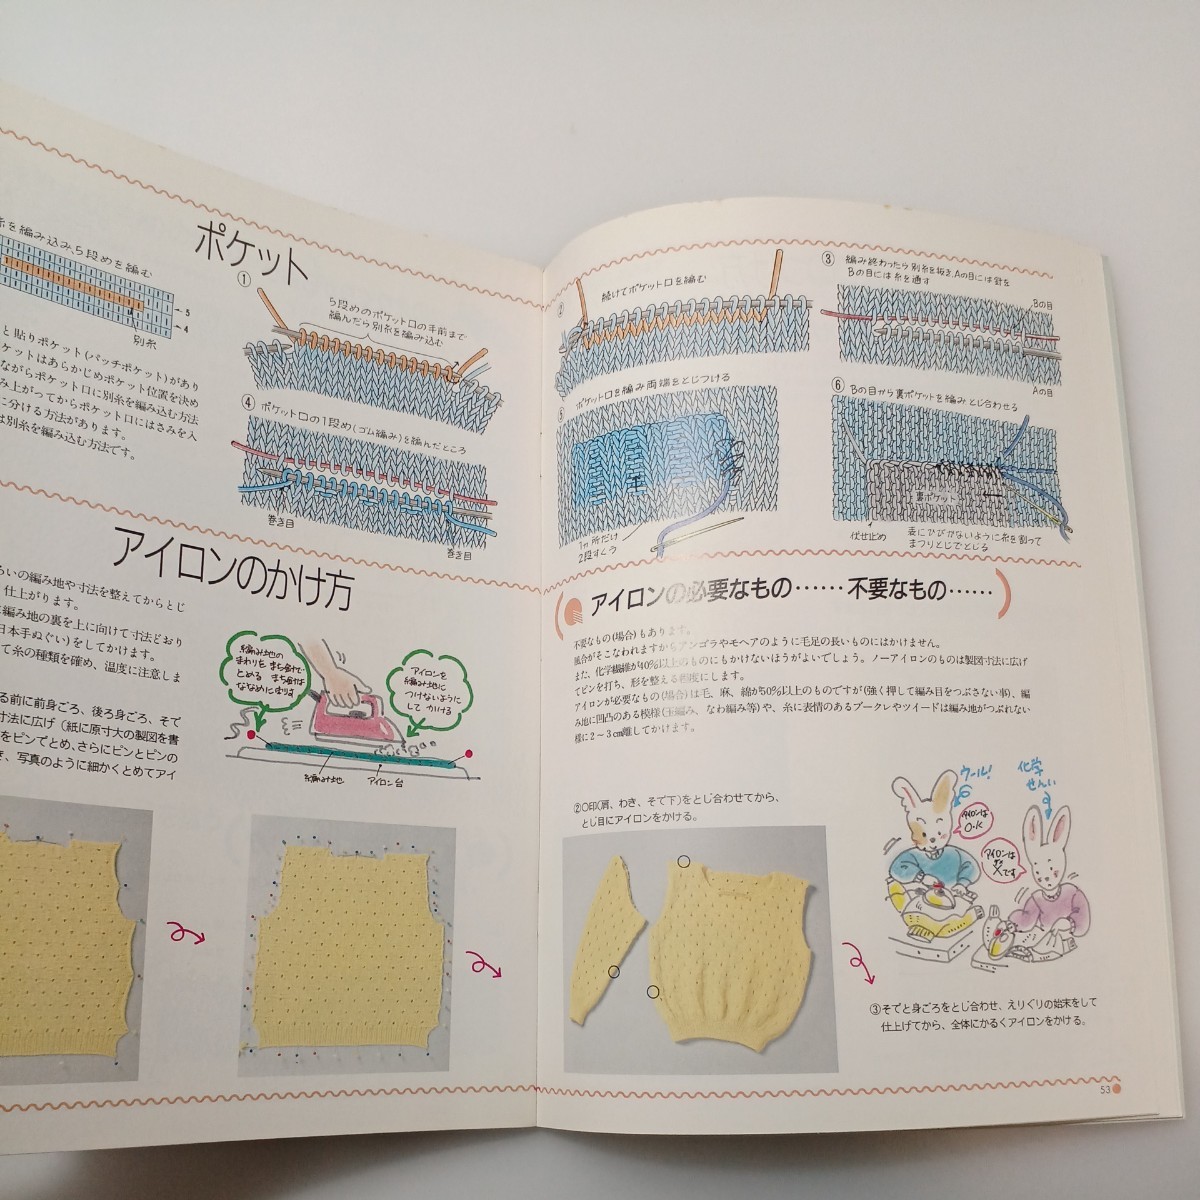 ポケット
糸を編み込み、5段めを編む
5
4
別糸
と貼りポケット(パッチポケット)があり
ケットはあらかじめポケット位置を決め
ながらポケット口に別糸を編み込む方法
み上がってからポケット口にはさみを入
に分ける方法があります。
は別糸を編み込む方法です。
①
5段めのポケット口の手前まで
編んだら別糸を編み込む
④ ポケット口の1段め(ゴム編み)を編んだところ
巻き目
巻き目
アイロンのかけ方
いの編み地や寸法を整えてからとじ
仕上がります。
編み地の裏を上に向けて寸法どおり
日本手ぬぐい)をしてかけます。
て糸の種類を確め、温度に注意しま
る前に前身ごろ、後ろ身ごろ、そで
寸法に広げ(紙に原寸大の製図を書
をピンでとめ、さらにピンとピンの
き、写真のように細かくとめてアイ
編み地の
まわりを まち針で
とめる まち針は
ななめにさす
アイロンを
編み地に
つけないように
して かける
編み地
アイロン台
②
続けてポケット口を編む
③ 編み終わったら別糸を抜き、Aの目には針を
Bの目には糸を通す
Bの目
Aの目
⑤
ポケット口を編み両端をとじつける
1か所だけ
2段すくう
⑥ Bの目から裏ポケットを編みとじ合わせる
裏ポケット
伏せ止め
表にひびかないように糸を割って
まつりとじでとじる
アイロンの必要なもの……不要なもの……
不要なもの(場合)もあります。
風合がそこなわれますからアンゴラやモヘアのように毛足の長いものにはかけません。
また、化学繊維が40%以上のものにもかけないほうがよいでしょう。ノーアイロンのものは製図寸法に広げ
てピンを打ち、形を整える程度にします。
アイロンが必要なもの(場合)は毛、麻、綿が50%以上のものですが(強く押して編み目をつぶさない事)、編
み地に凹凸のある模様(玉編み、なわ編み等)や、糸に表情のあるブークレやツイードは編み地がつぶれない
様に2~3cm離してかけます。
②○印(肩、わき、そで下)をとじ合わせてから、
とじ目にアイロンをかける。
ウール!
アイロンは
O・K
化学
せんい
アイロンは
×です
③そでと身ごろをとじ合わせ、えりぐりの始末をして
仕上げてから、全体にかるくアイロンをかける。
53